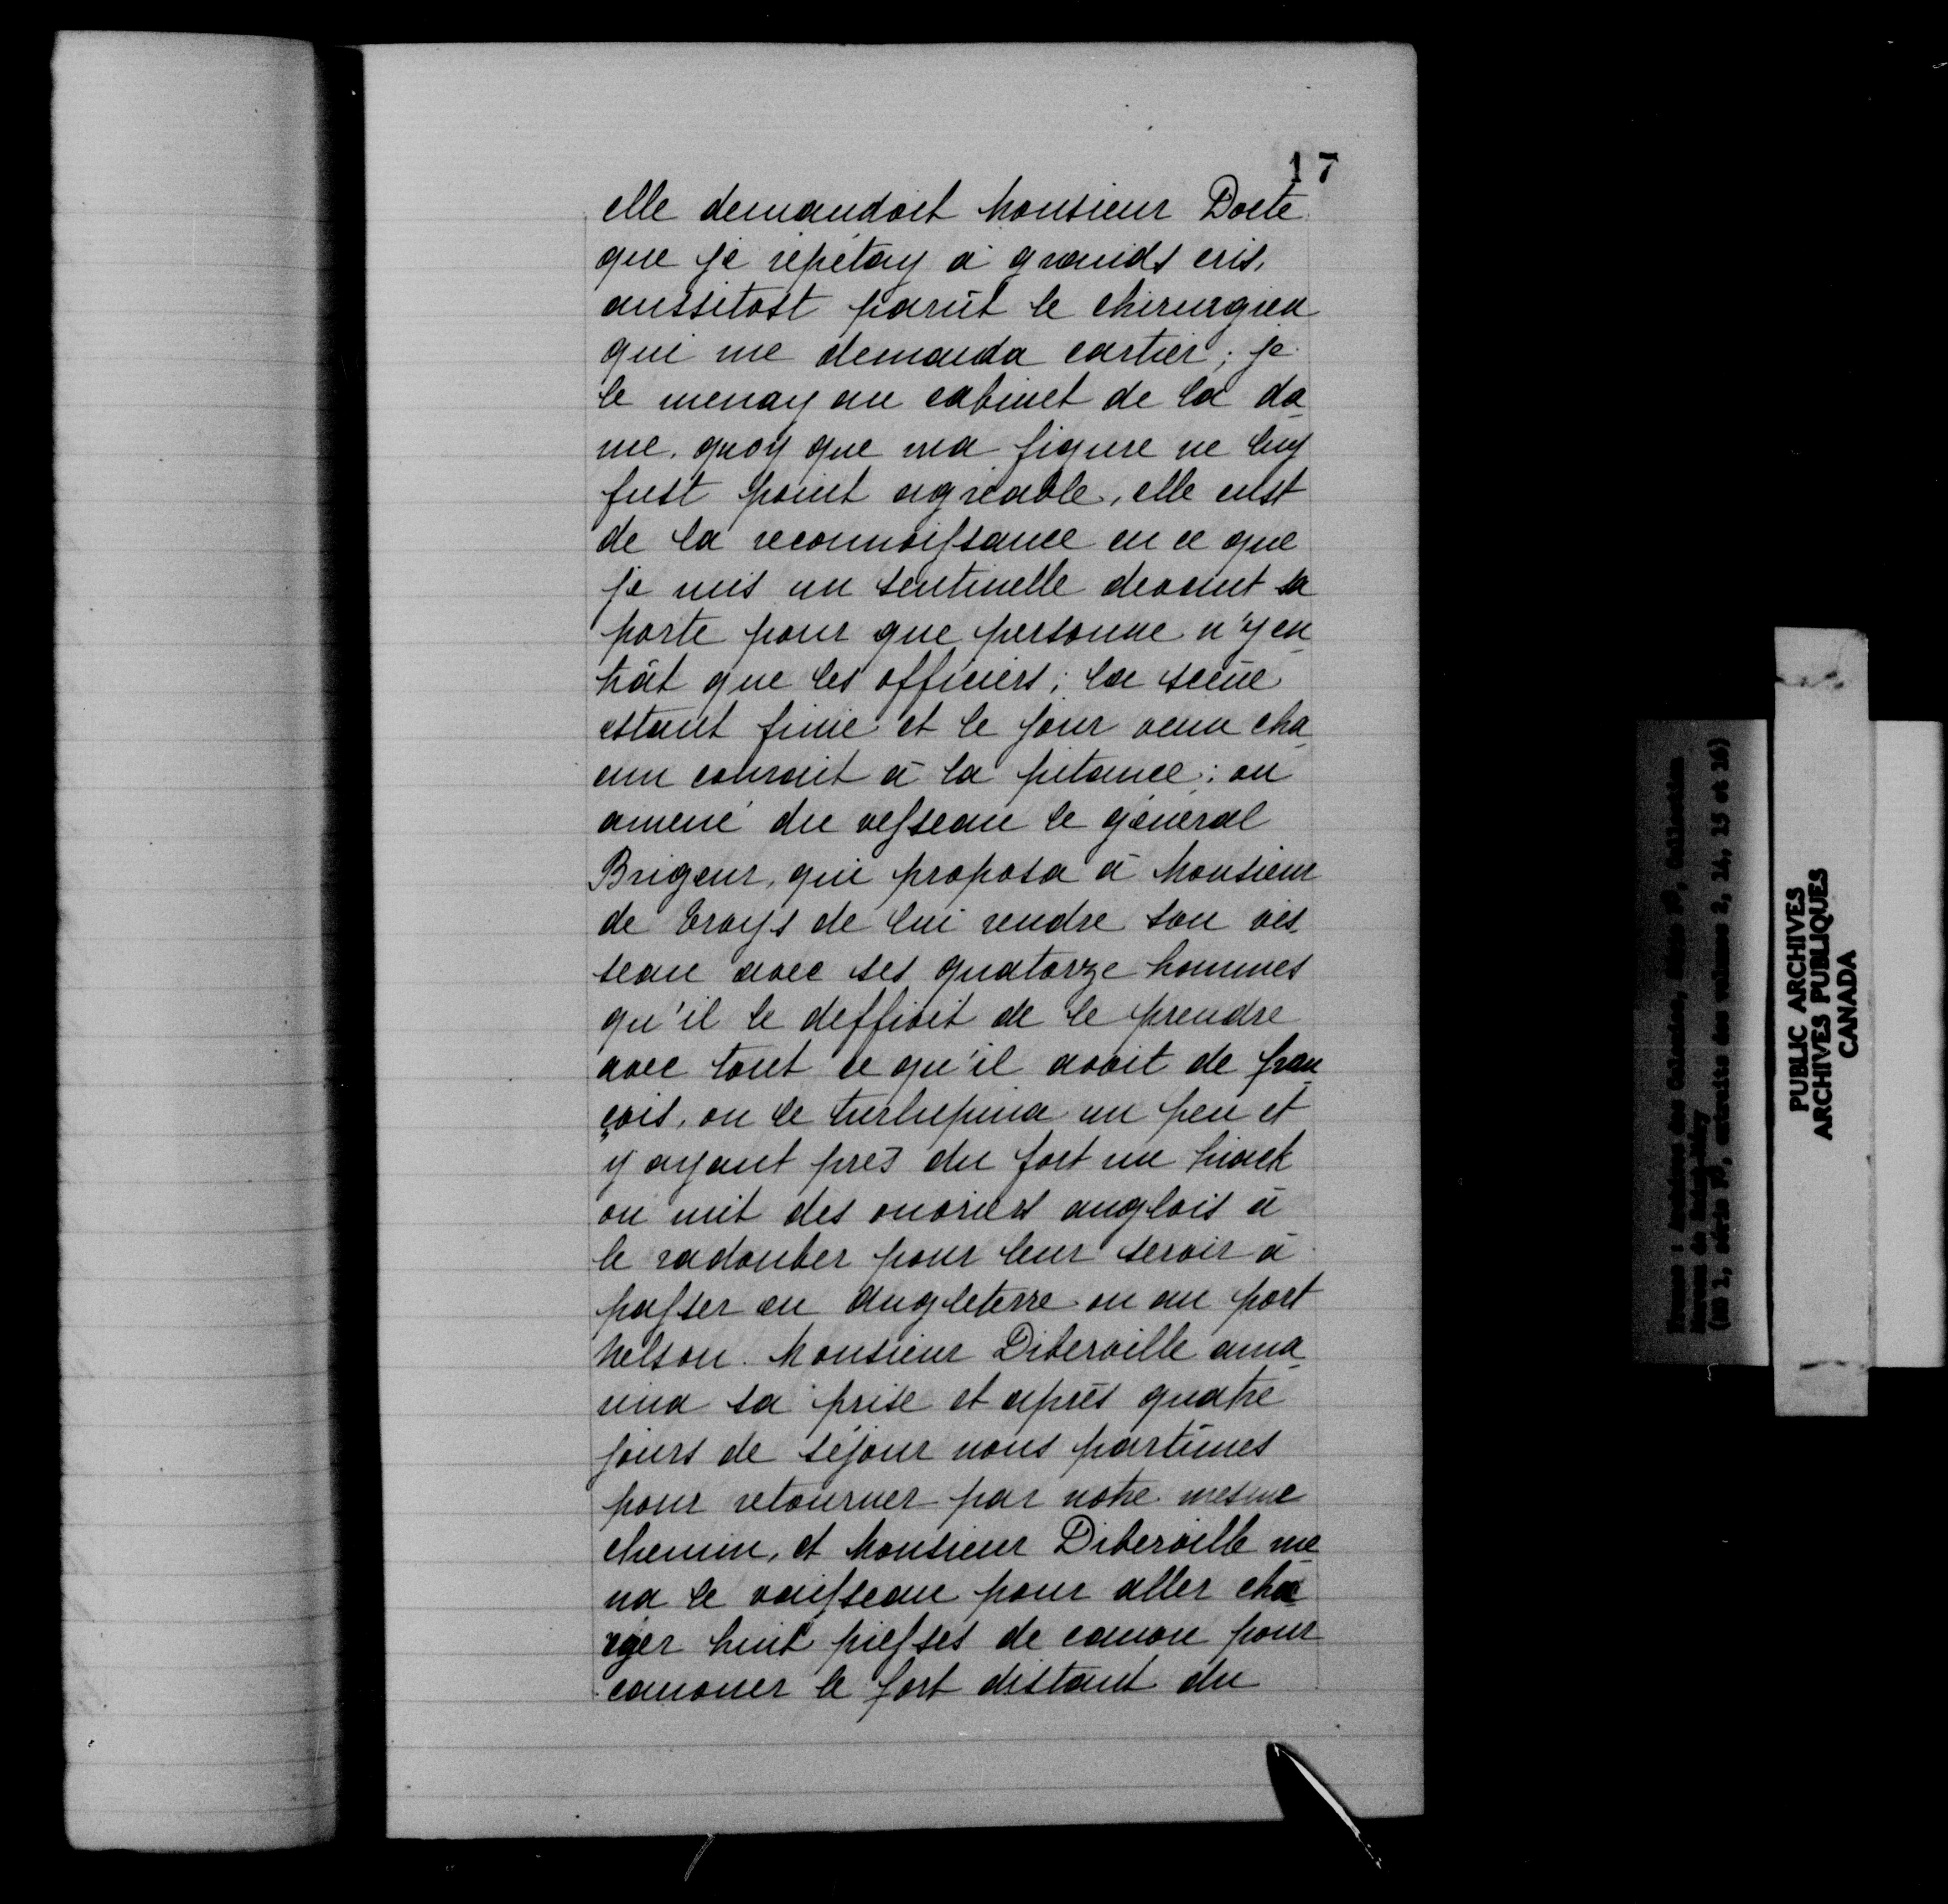 17
elle demandoit Monsieur Docte
que je répétay à grands cris,
aussitost parut le chirurgien
qui me demanda cartier; je
le menay au cabinet de la da
me, quoy que ma figure ne luy
fust point agréable, elle eust
de la reconnoissance en ce que
je mis un sentinelle devant sa
porte pour que personne n'y en
trât que les officiers; la scène
estant finie et le jour venu cha
cun couroit à la pitance; on
amené du vesseau le général
Brigeur, qui proposa à Monsieur
de Troys de lui rendre son ves
seau avec ses quatorze hommes
qu'il le deffioit de le prendre
avec tout ce qu'il avoit de fran
çois, on le turlupina un peu et
y ayant près du fort un hiack
on mit des ouvriers anglois à
le radouber pour leur servir à
passer en Angleterre ou au port
Nelson. Monsieur Diberville ama
rina sa prise et après quatre
jours de séjour nous partimes
pour retourner par notre mesme
chemin, et Monsieur Diberville me
na le vaisseau pour aller cha
rger huit piesses de canon pour
canoner le fort distant du
PUBLIC ARCHIVES
ARCHIVES PUBLIQUES
CANADA
(no 1, série 2F, extraits des volumes 2, 14, 15 et 16)